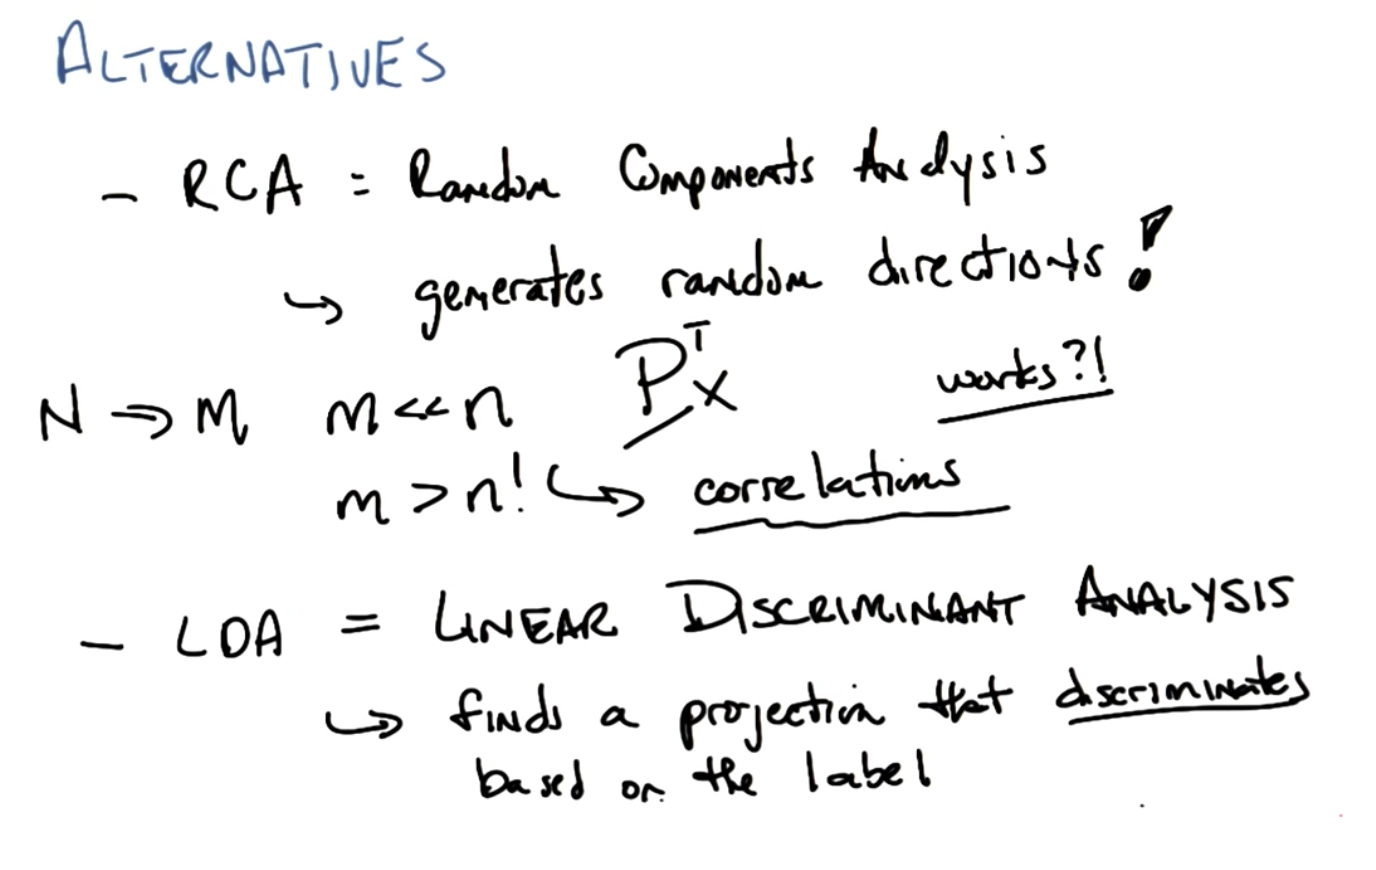 ALTERNATIVES
- RCA = Random Components Analysis
↪ generates random directions!
N ⇒ M m << n P^T x works?!
m > n! ↪ correlations
- LDA = LINEAR DISCRIMINANT ANALYSIS
↪ finds a projection that discriminates
based on the label